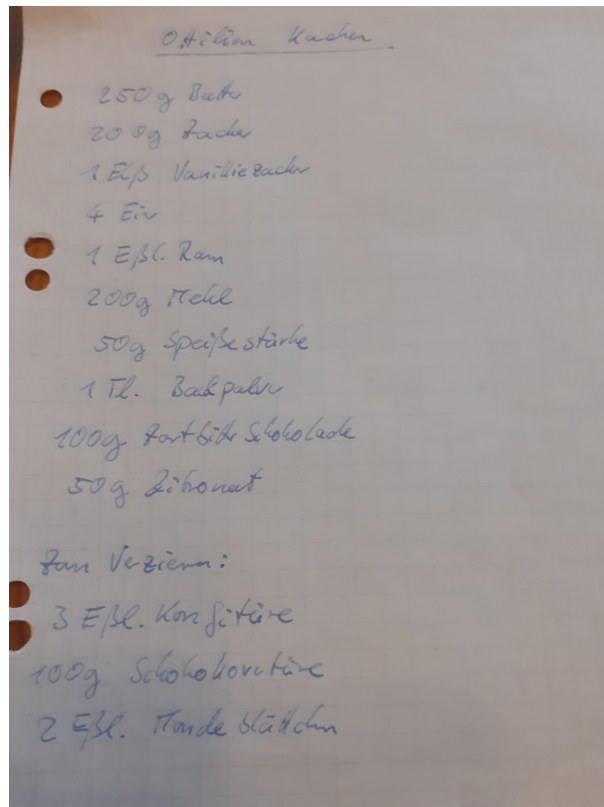 Ottilien Kuchen
250g Butter
200g Zucker
1 Eßl Vanilliezucker
4 Eier
1 Eßl. Rum
200g Mehl
50g Speißestärke
1 Tl. Backpulver
100g Zartbitter Schokolade
50g Zitronat
Zum Verziern:
3 Eßl. Konfitüre
100g Schokokovutüre
2 Eßl. Mandelblättchen